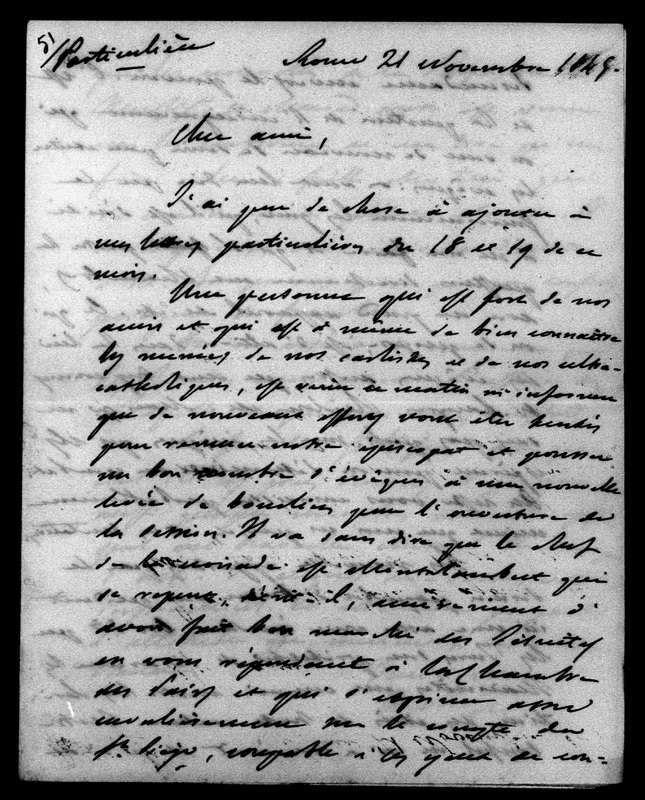 5/ Particulière
Rome 21 Novembre 184
Cher ami,
J'ai peu de chose à ajouter à
mes lettres particulières du 18 et 19 de ce
mois.
Une personne qui est fort de nos
amis et qui est à même de bien connaître
les menées de nos carlistes et de nos ultra-
catholiques, est venue ce matin m'informer
que de nouveaux efforts vont être tentés
pour remuer notre épiscopat et pousser
un bon nombre d'évêques à une nouvelle
levée de boucliers pour l'ouverture de
la session. Il va sans dire que le chef
de la croisade est Montalembert qui
se repent, dit-il, amèrement d'
avoir fait bon marché des Jésuites
en vous répondant à la Chambre
des Pairs et qui s'exprime assez
cavalièrement sur le compte du
St. Siège, coupable à ses yeux de con-